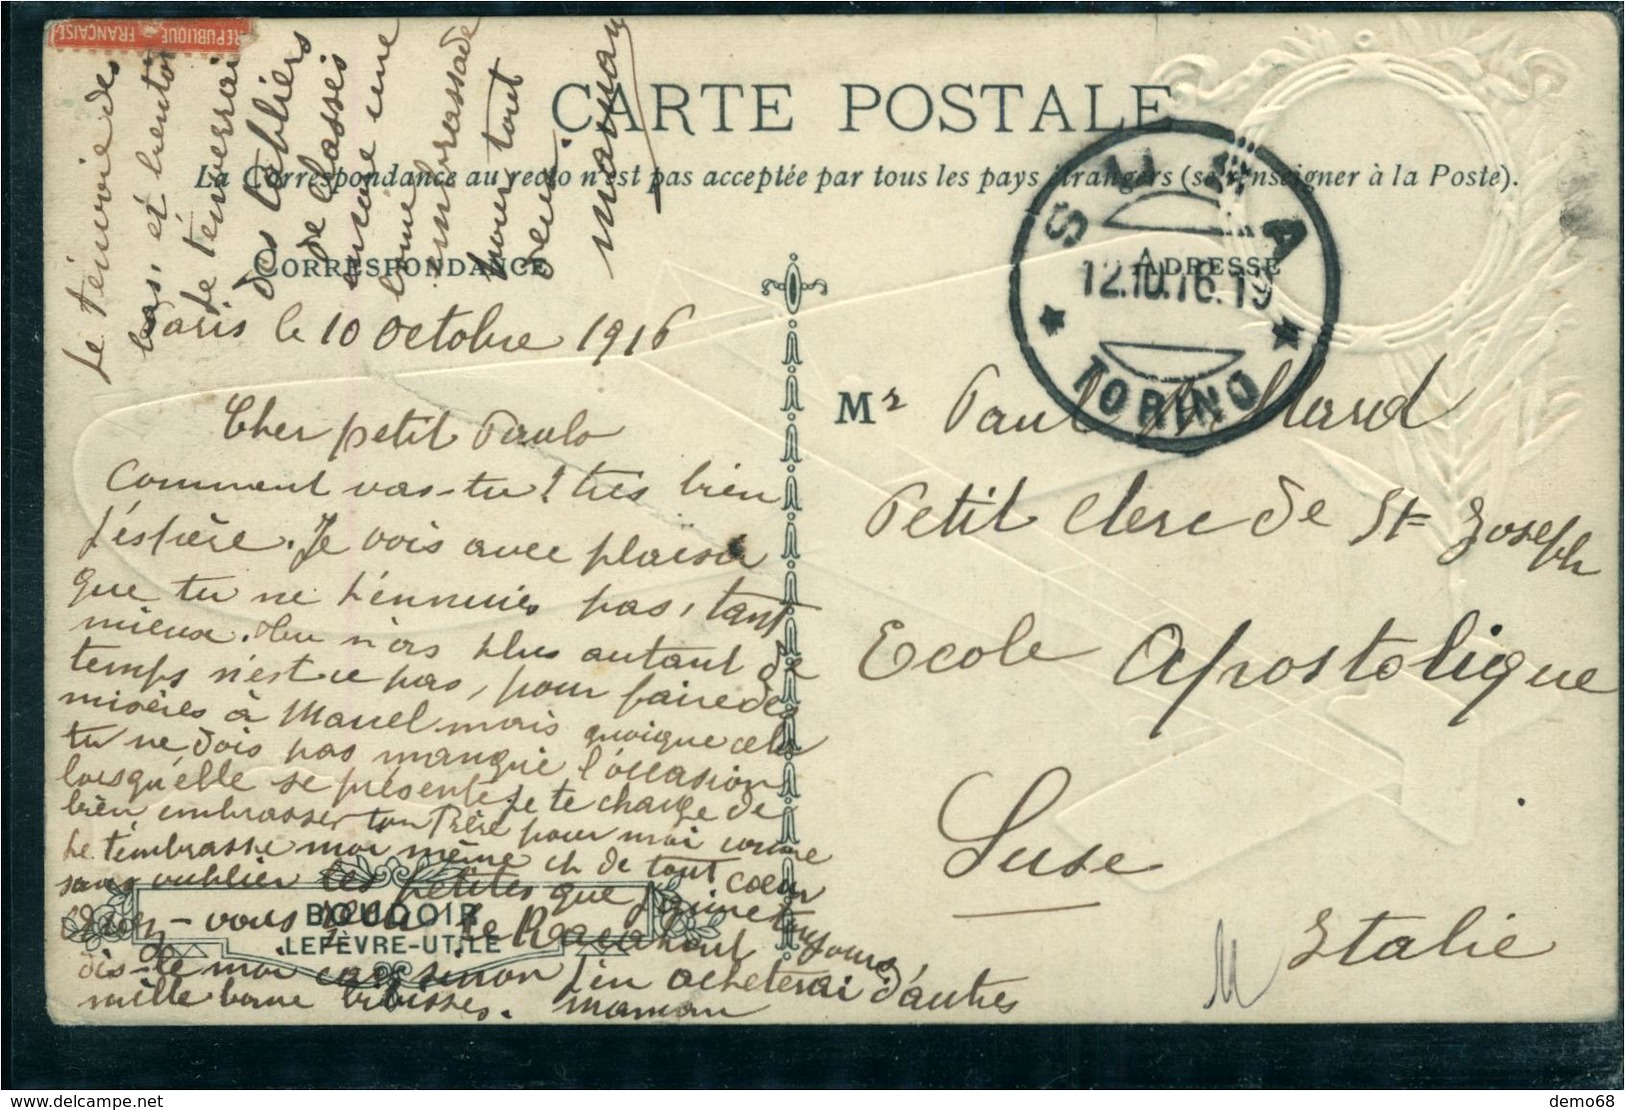 REPUBLIQUE FRANCAISE
CARTE POSTALE
La Correspondance au recto n'est pas acceptée par tous les pays étrangers (se renseigner à la Poste).
CORRESPONDANCE
ADRESSE
SUSA
12.10.16.19
TORINO
Paris le 10 Octobre 1916
Cher petit Paulo
Comment vas-tu? très bien
j'espère. Je vois avec plaisir
que tu ne t'ennuies pas, tant
mieux. tu n'as plus autant de
temps n'est ce pas, pour faire des
misères à Marcel mais quoique cela
tu ne dois pas manquer l'occasion
lorsqu'elle se présente je te charge de
bien embrasser ton Frère pour moi comme
je t'embrasse moi même et de tout coeur
sans oublier les petites que j'aime toujours
-vous le Racahout
dis-le moi car sinon j'en acheterai d'autres
mille bonne bibisses. maman
Je t'envoie des
bas, et bientôt
je t'enverrai
des tabliers
de classes
encore une
bonne
embrassade
pour tout
deux.
maman
BOUDOIR
LEFÈVRE-UTILE
Mr Paul
Petit Clerc de St Joseph
Ecole Apostolique
Suse
Italie
M
delcampe.net
demo68